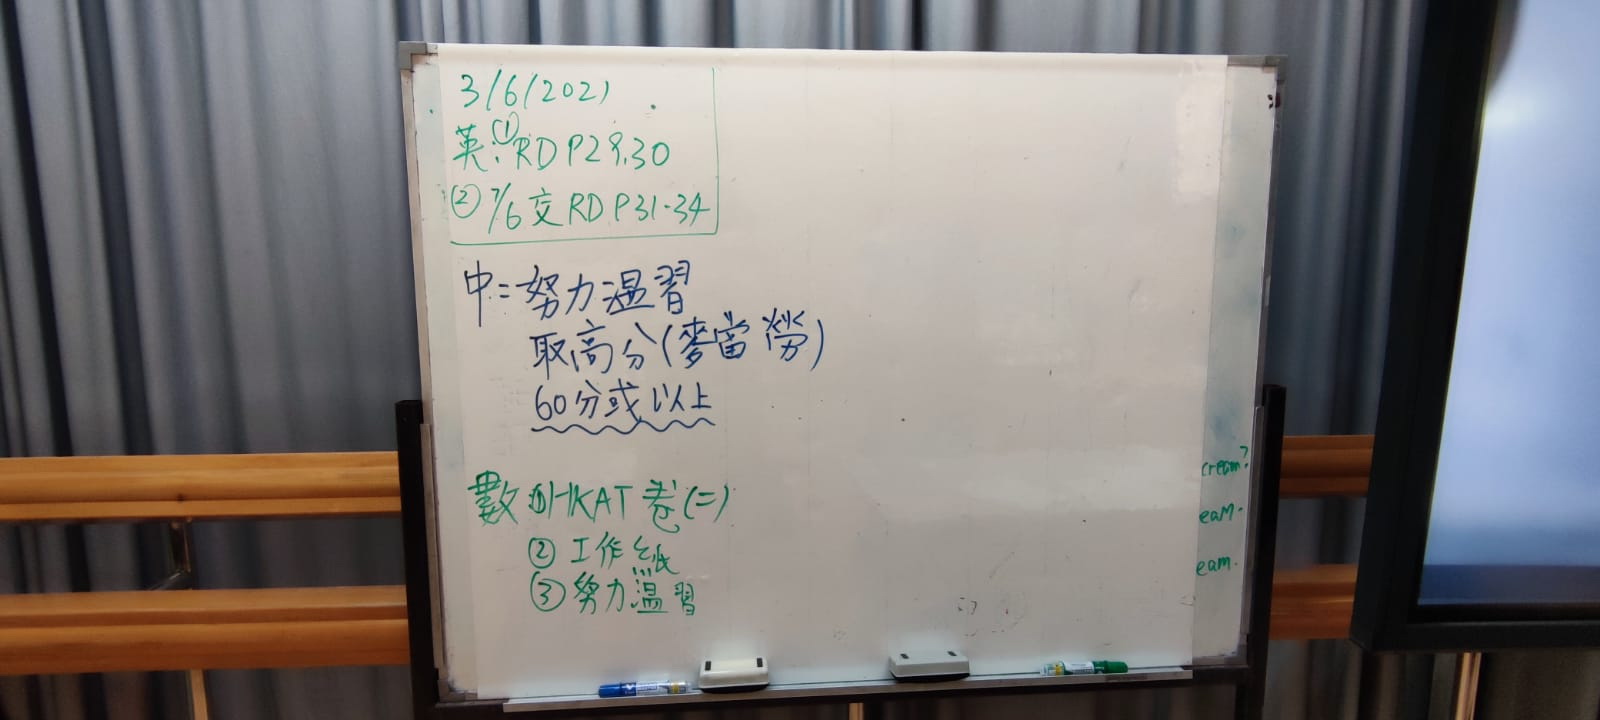 3/6/2021
英: ① RD P29,30
② 7/6 交 RD P31-34
中: 努力溫習
取高分(麥當勞)
60分或以上
數 ① HKAT 卷(二)
② 工作紙
③ 努力溫習
cream?
eam.
eam.